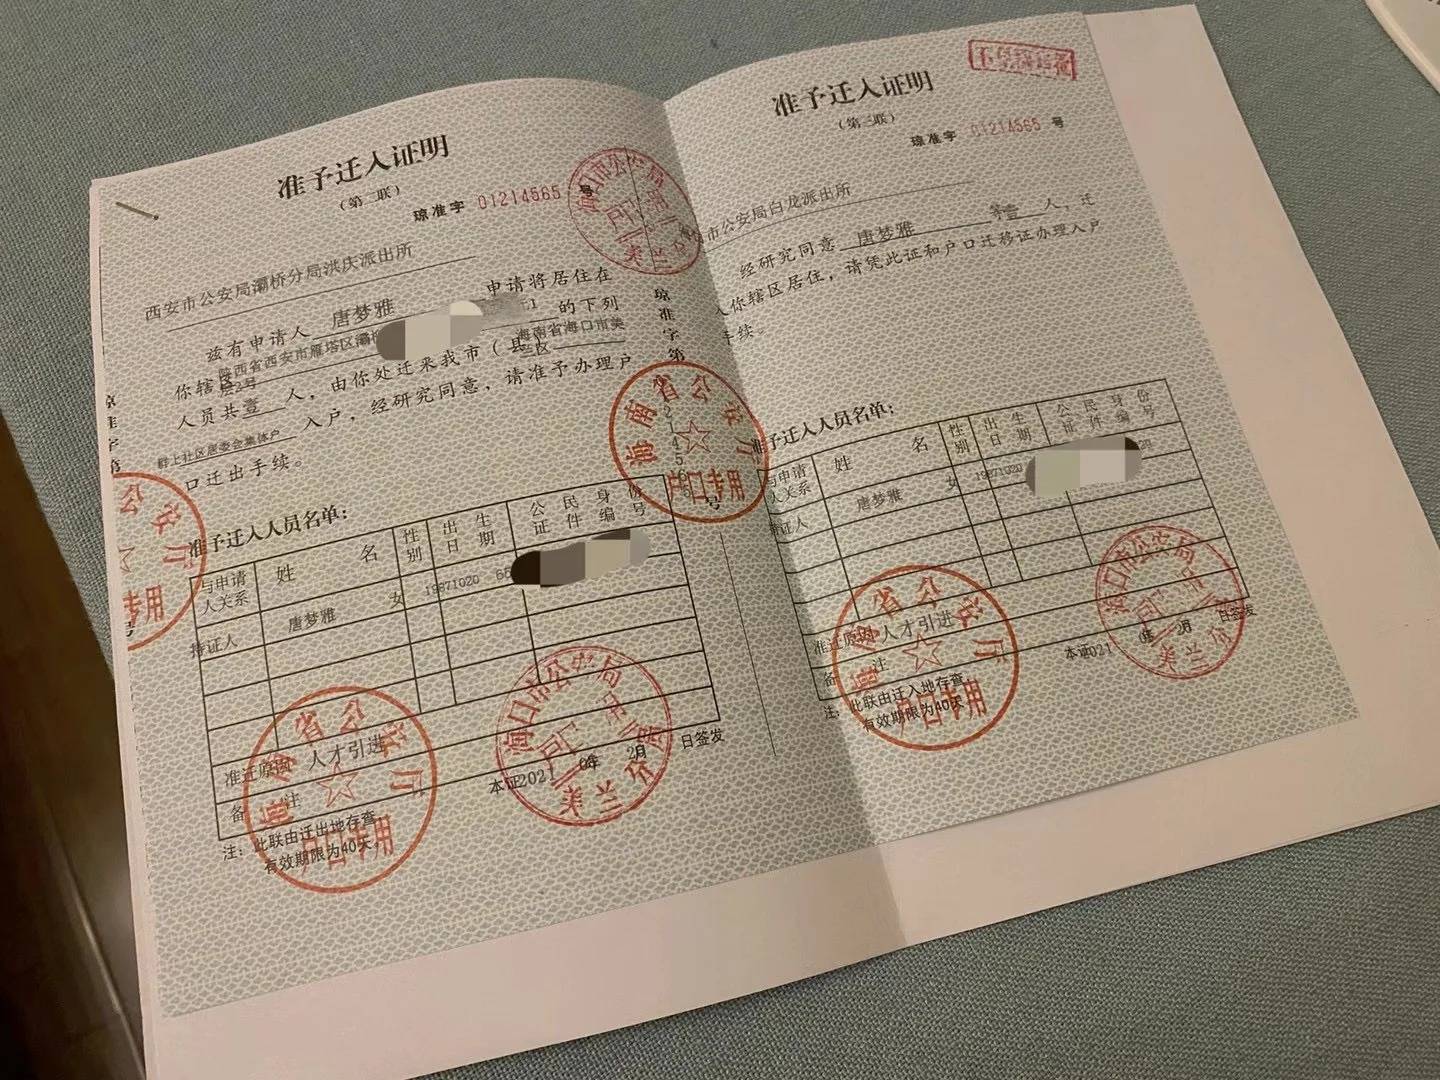 准予迁入证明
（第二联）
琼准字 01214565 号
西安市公安局灞桥分局洪庆派出所
兹有申请人 唐梦雅 申请将居住在
陕西省西安市雁塔区灞桥
你辖区 的下列
层2号
海南省海口市美兰区
人员共壹人，由你处迁来我市（县）
群上社区居委会集体户 入户，经研究同意，请准予办理户
口迁出手续。
准予迁入人员名单：
与申请人关系 姓名 性别 出生日期 公民身份证件编号
持证人 唐梦雅 女 19871020
准迁原因 人才引进
备注
注：此联由迁出地存查，
有效期限为40天。
本证2021 年 2月 日签发
海南省公安厅
户口专用
海口市公安局
美兰分局
琼准字第
号
准予迁入证明
（第三联）
琼准字 01214565 号
市公安局白龙派出所
经研究同意 唐梦雅 等壹人，迁
入你辖区居住，请凭此证和户口迁移证办理入户
手续。
准予迁入人员名单：
与申请人关系 姓名 性别 出生日期 公民身份证件编号
持证人 唐梦雅 女 19871020
准迁原因 人才引进
备注
注：此联由迁入地存查，
有效期限为40天
本证2021 年 2月 日签发
海南省公安厅
户口专用
海口市公安局
美兰分局